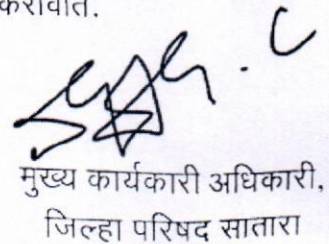 करावीत.
मुख्य कार्यकारी अधिकारी,
जिल्हा परिषद सातारा